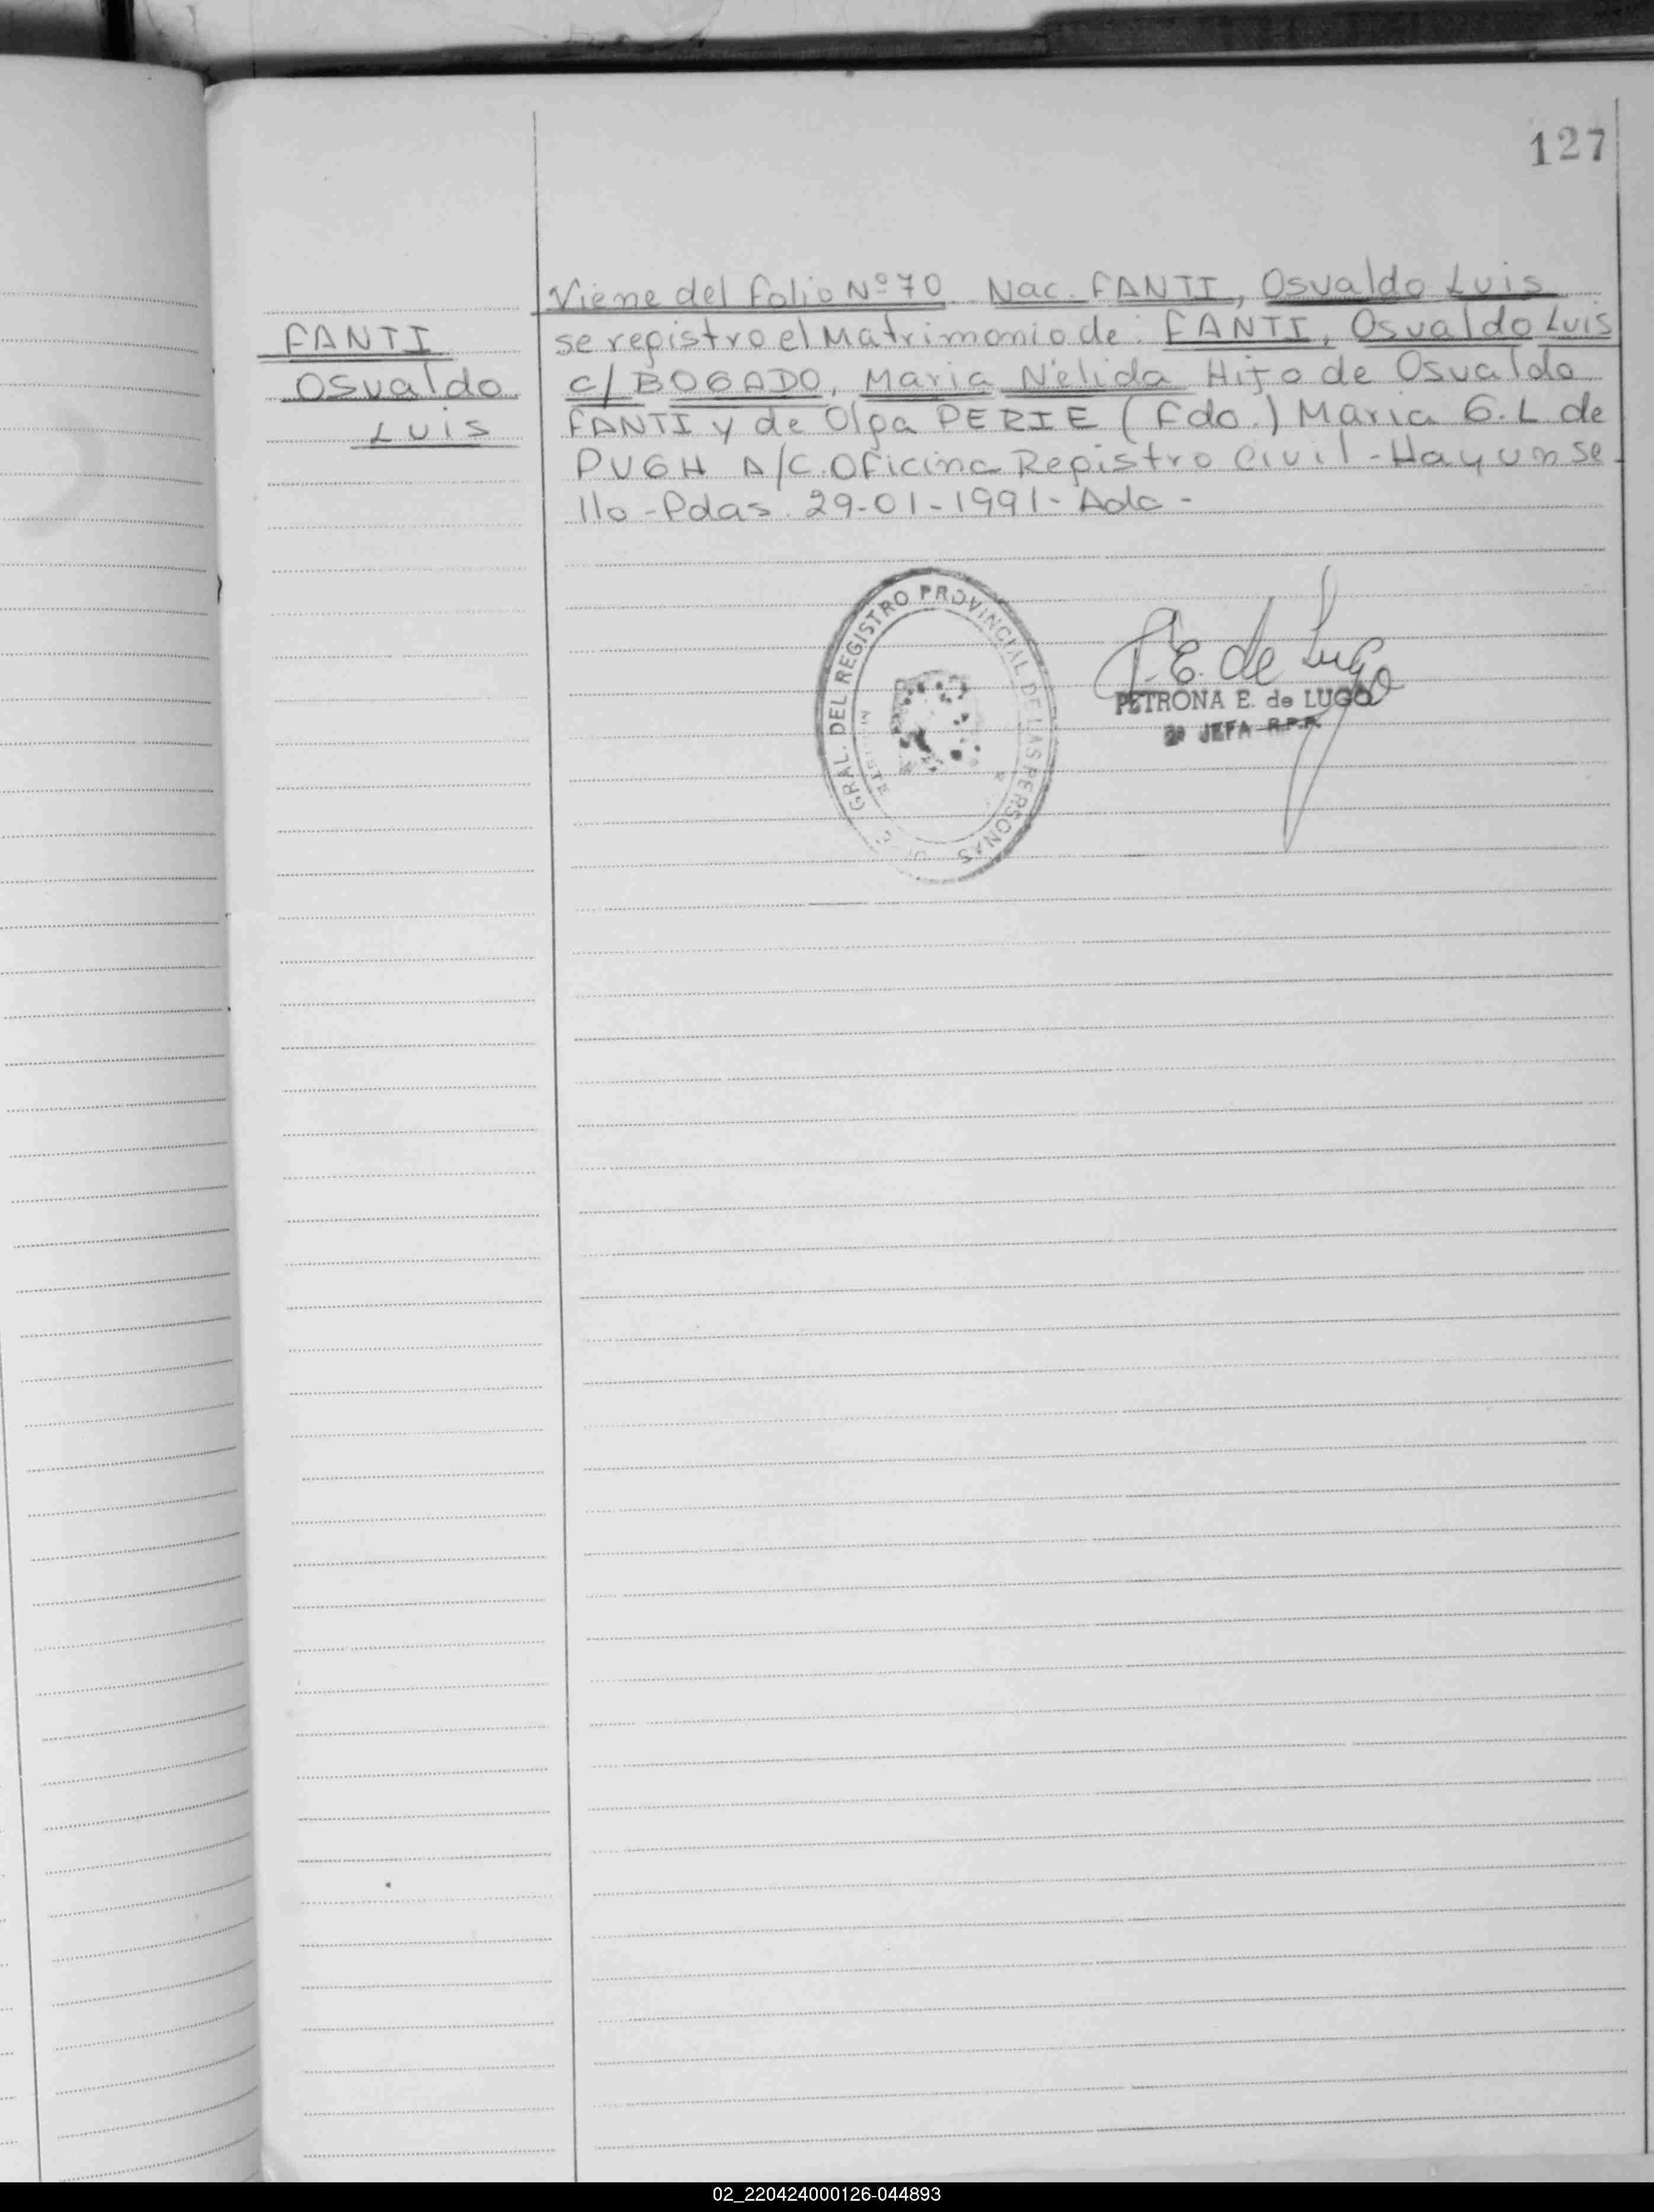 127
FANTI
Osvaldo
Luis
Viene del Folio Nº 70 Nac. FANTI, Osvaldo Luis
se registro el Matrimonio de: FANTI, Osvaldo Luis
c/ BOGADO, Maria Nélida Hijo de Osvaldo
FANTI y de Olga PERIE (Fdo.) Maria G. L de
PUGH A/C. Oficina Registro Civil - Hay un se
llo - Pdas. 29-01-1991 -
GRAL. DEL REGISTRO PROVINCIAL DE LAS PERSONAS
P. E. de Lugo
PETRONA E. de LUGO
JEFA R.P.P.
02_220424000126-044893